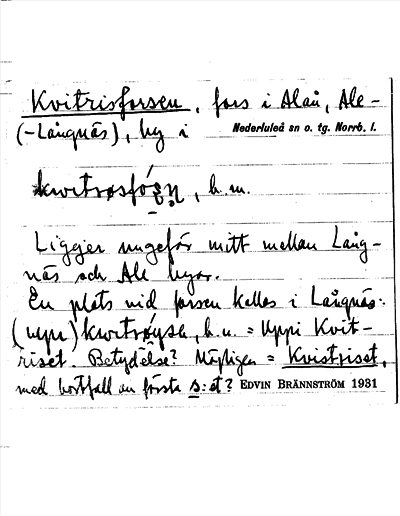 Kvitrisforsen, fors i Alån, Ale-
(-Långnäs), by i Nederluleå sn o. tg. Norrb. l.
b.m.
Ligger ungefär mitt mellan Lång-
näs och Ale byar.
En plats vid forsen kallas i Långnäs:
(uppi) b.n. = Uppi Kvit-
riset. Betydelse? Möjligen = Kvistriset,
med bortfall av första s:et? EDVIN BRÄNNSTRÖM 1931